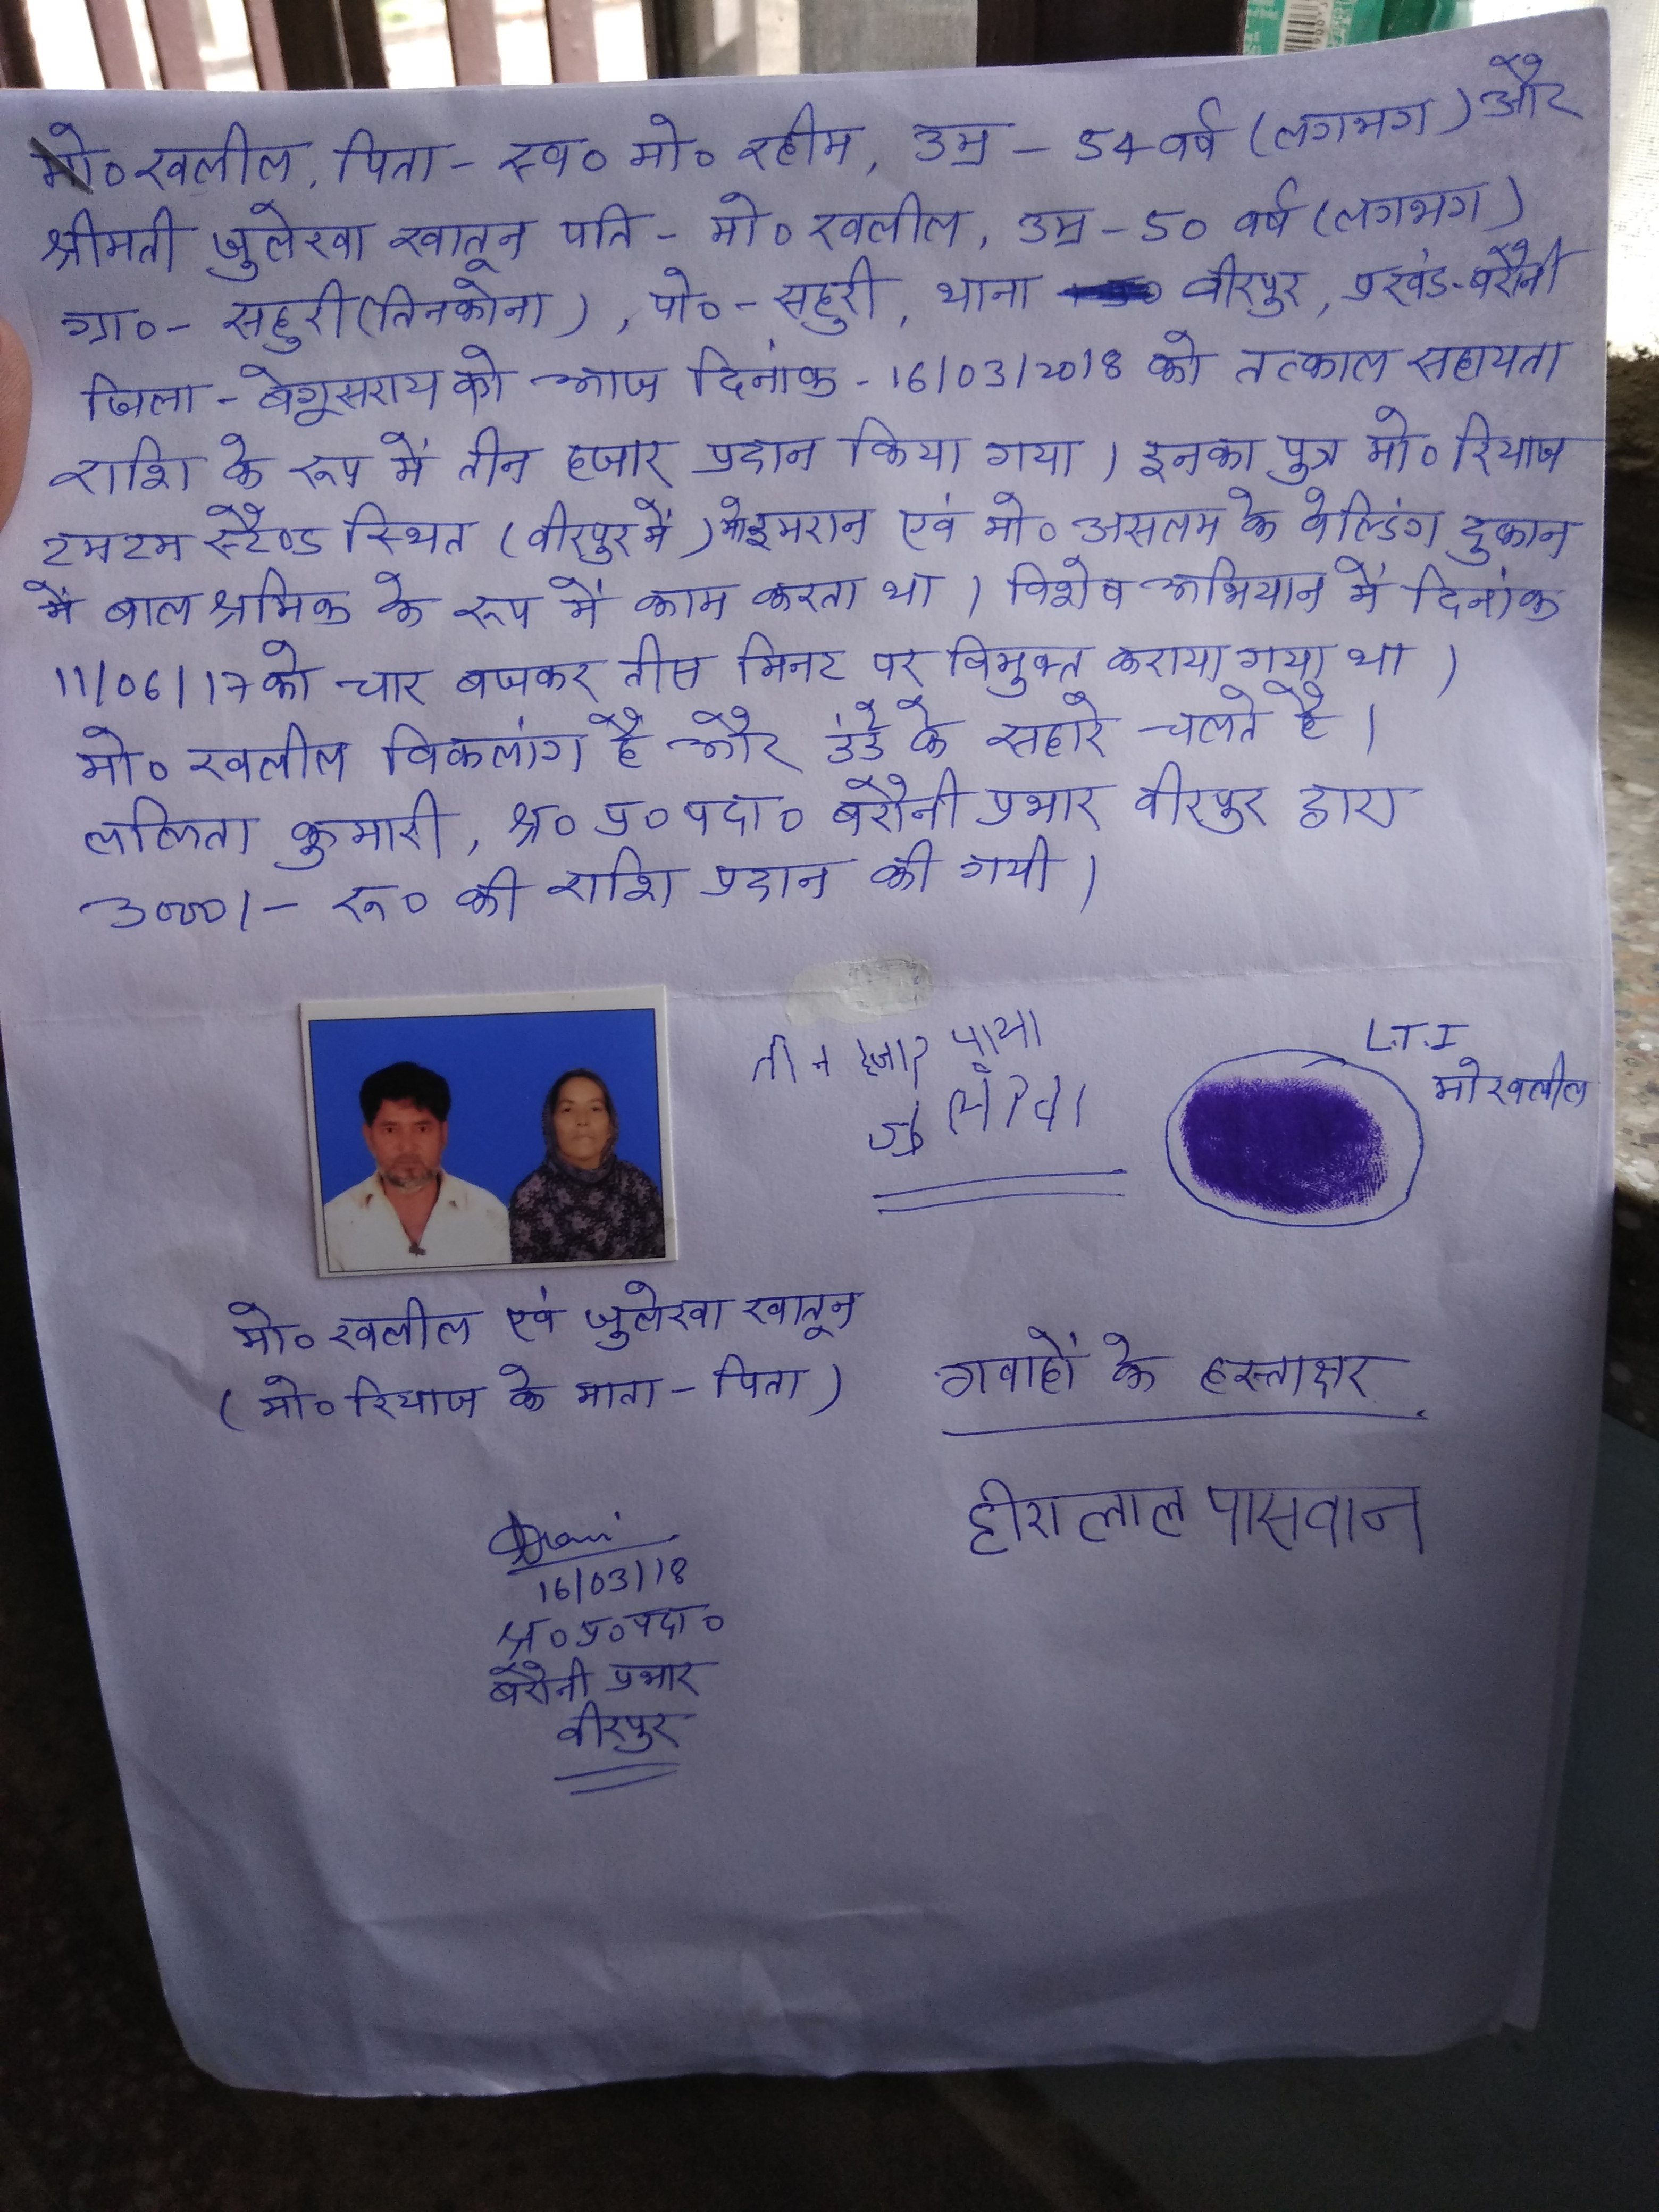 मो० खलील, पिता - स्व० मो० रहीम, उम्र - 54 वर्ष (लगभग) और
श्रीमती जुलेखा खातून पति - मो० खलील, उम्र - 50 वर्ष (लगभग)
ग्रा० - सहुरी (तिनकोना), पो० - सहुरी, थाना वीरपुर, प्रखंड - बरौनी
जिला - बेगूसराय को आज दिनांक - 16/03/2018 को तत्काल सहायता
राशि के रूप में तीन हजार प्रदान किया गया। इनका पुत्र मो० रियाज
टमटम स्टैण्ड स्थित (वीरपुर में) मो इमरान एवं मो० असलम के वेल्डिंग दुकान
में बाल श्रमिक के रूप में काम करता था। विशेष अभियान में दिनांक
11/06/17 को चार बजकर तीस मिनट पर विमुक्त कराया गया था।
मो० खलील विकलांग हैं और डंडे के सहारे चलते है।
ललिता कुमारी, श्र० प्र० पदा० बरौनी प्रभार वीरपुर द्वारा
3000/- रू० की राशि प्रदान की गयी।
तीन हजार पाया
L.T.I
मो खलील
मो० खलील एवं जुलेखा खातून
(मो० रियाज के माता - पिता)
गवाहों के हस्ताक्षर
हीरा लाल पासवान
16/03/18
श्र० प्र० पदा०
बरौनी प्रभार
वीरपुर